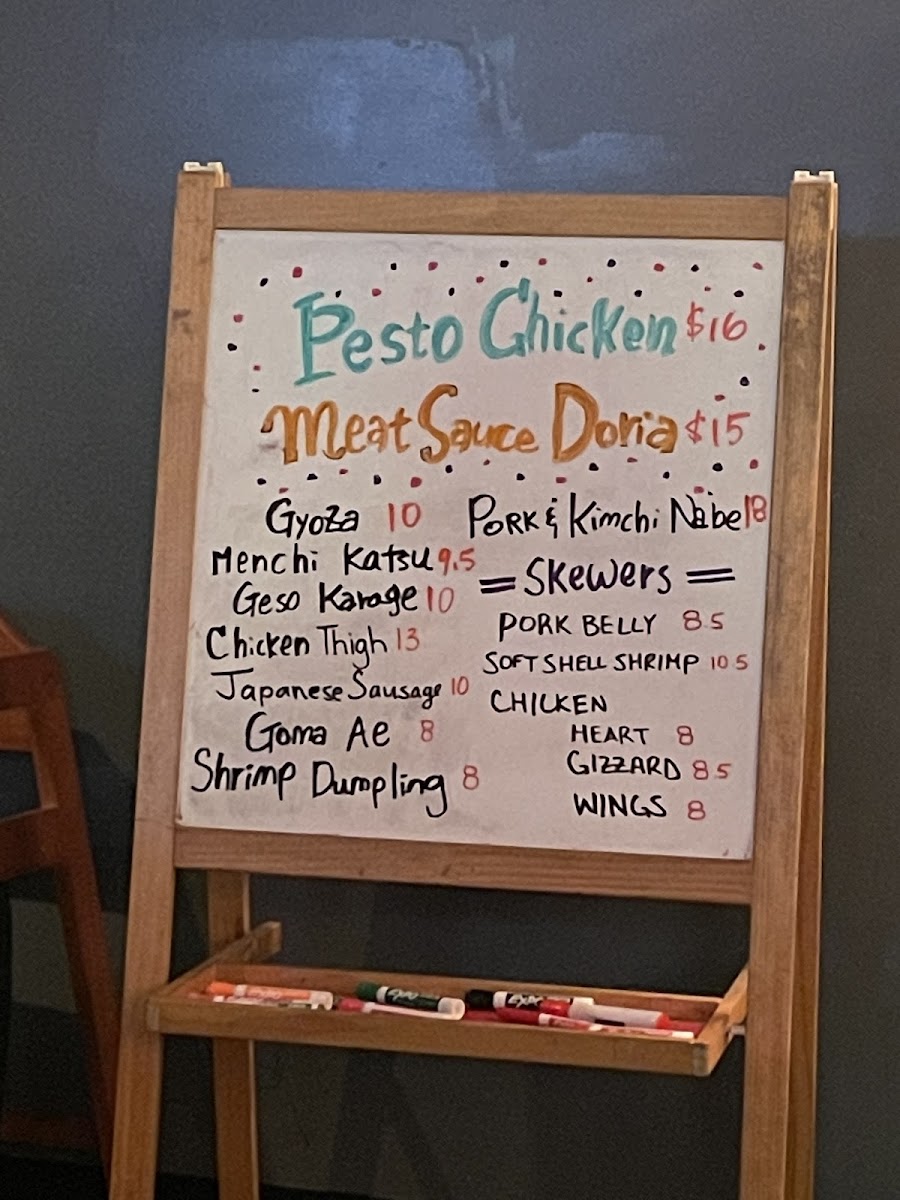 Pesto Chicken $16
Meat Sauce Doria $15
Gyoza 10
Menchi Katsu 9.5
Geso Karage 10
Chicken Thigh 13
Japanese Sausage 10
Goma Ae 8
Shrimp Dumpling 8
Pork & Kimchi Nabe 18
= Skewers =
PORK BELLY 8.5
SOFT SHELL SHRIMP 10 5
CHICKEN
HEART 8
GIZZARD 8 5
WINGS 8
EXPO
EXPO